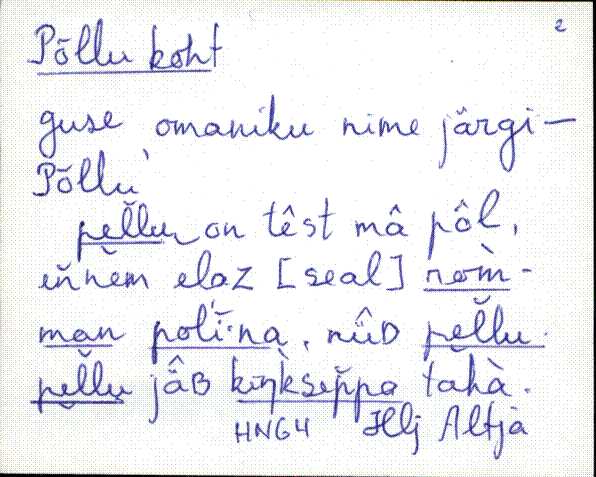 2
Põllu koht
guse omaniku nime järgi —
Põllu
pel̆lu on tê̮st mâ pôl,
en̆nĕm elaz [seal] rom̀-
man poli·na, nûD pel̆lu
pel̆lu jâ̈B kiŋ̀ksep̆pa tăhà.
HNG4 Hlj Altja